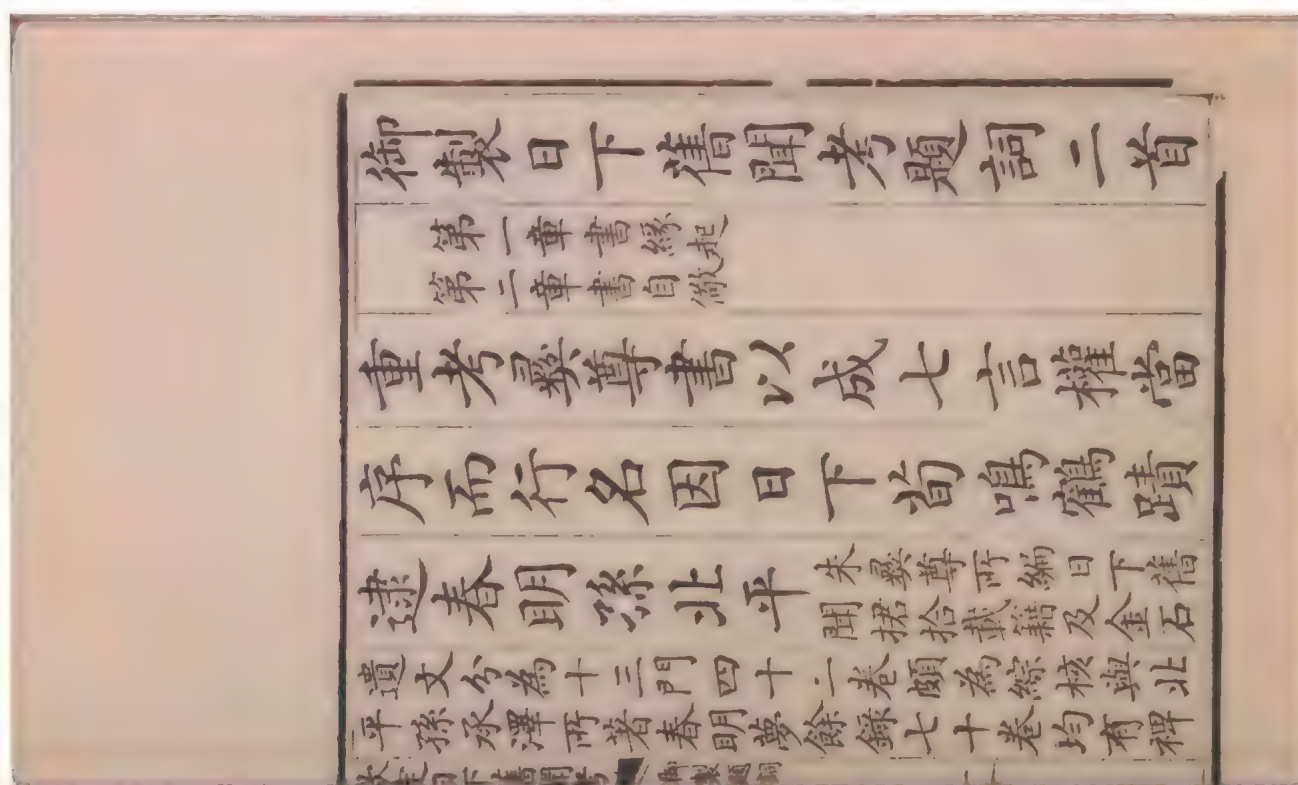 御製日下舊聞考題詞二首
第一章書緣起
第二章書自儆
重考彝尊書以成七言權當
序而行名因日下荀鳴鶴蹟
逮春明孫北平
朱彝尊所編日下舊
聞捃拾載籍及金石
遺文分為十三門四十二卷頗為綜核與北
平孫承澤所著春明夢餘錄七十卷均有裨
欽定日下舊聞考
御製題詞